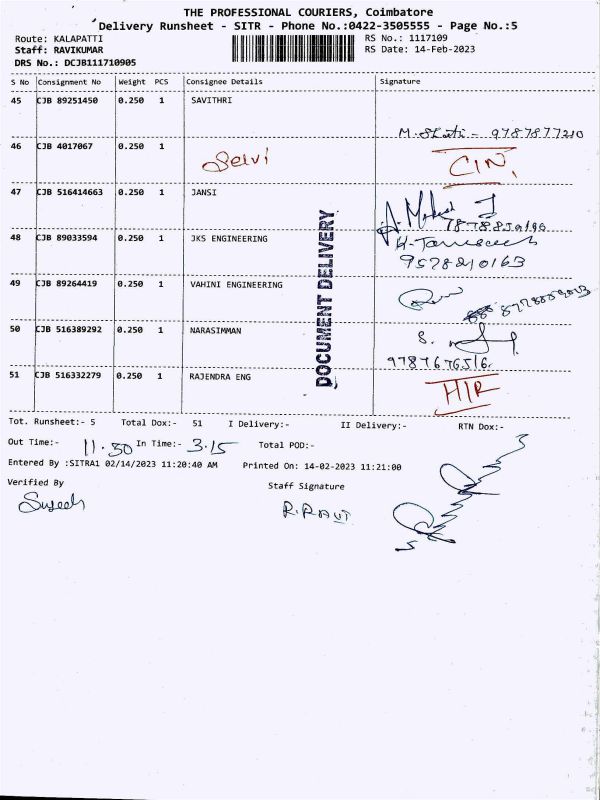 THE PROFESSIONAL COURIERS, Coimbatore
Delivery Runsheet - SITR - Phone No.:0422-3505555 - Page No.:5
Route: KALAPATTI RS No.: 1117109
Staff: RAVIKUMAR RS Date: 14-Feb-2023
DRS No.: DCJB111710905
S No Consignment No Weight PCS Consignee Details Signature
45 CJB 89251450 0.250 1 SAVITHRI
9787877210
46 CJB 4017067 0.250 1 Selvi CIN.
47 CJB 516414663 0.250 1 JANSI
48 CJB 89033594 0.250 1 JKS ENGINEERING
9578210163
49 CJB 89264419 0.250 1 VAHINI ENGINEERING
50 CJB 516389292 0.250 1 NARASIMMAN S.
9787676516.
51 CJB 516332279 0.250 1 RAJENDRA ENG H/R
DOCUMENT DELIVERY
Tot. Runsheet:- 5 Total Dox:- 51 I Delivery:- II Delivery:- RTN Dox:-
Out Time:- 11.30 In Time:- 3.15 Total POD:-
Entered By :SITRA1 02/14/2023 11:20:40 AM Printed On: 14-02-2023 11:21:00
Verified By Staff Signature
R.RAVI